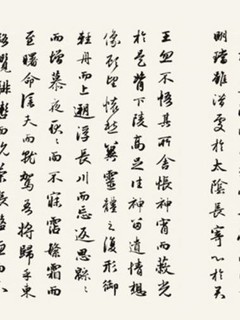 明璫雖潛處於太陰長寄心於君
王忽不悟其所舍悵神宵而蔽光
於是背下陵高足往神留遺情想
像顧望懷愁冀靈體之復形御
輕舟而上遡浮長川而忘返思緜〻
而增慕夜耿〻而不寐霑繁霜而
至曙命僕夫而就駕吾將歸乎東
路攬騑轡而抗策悵盤桓而不